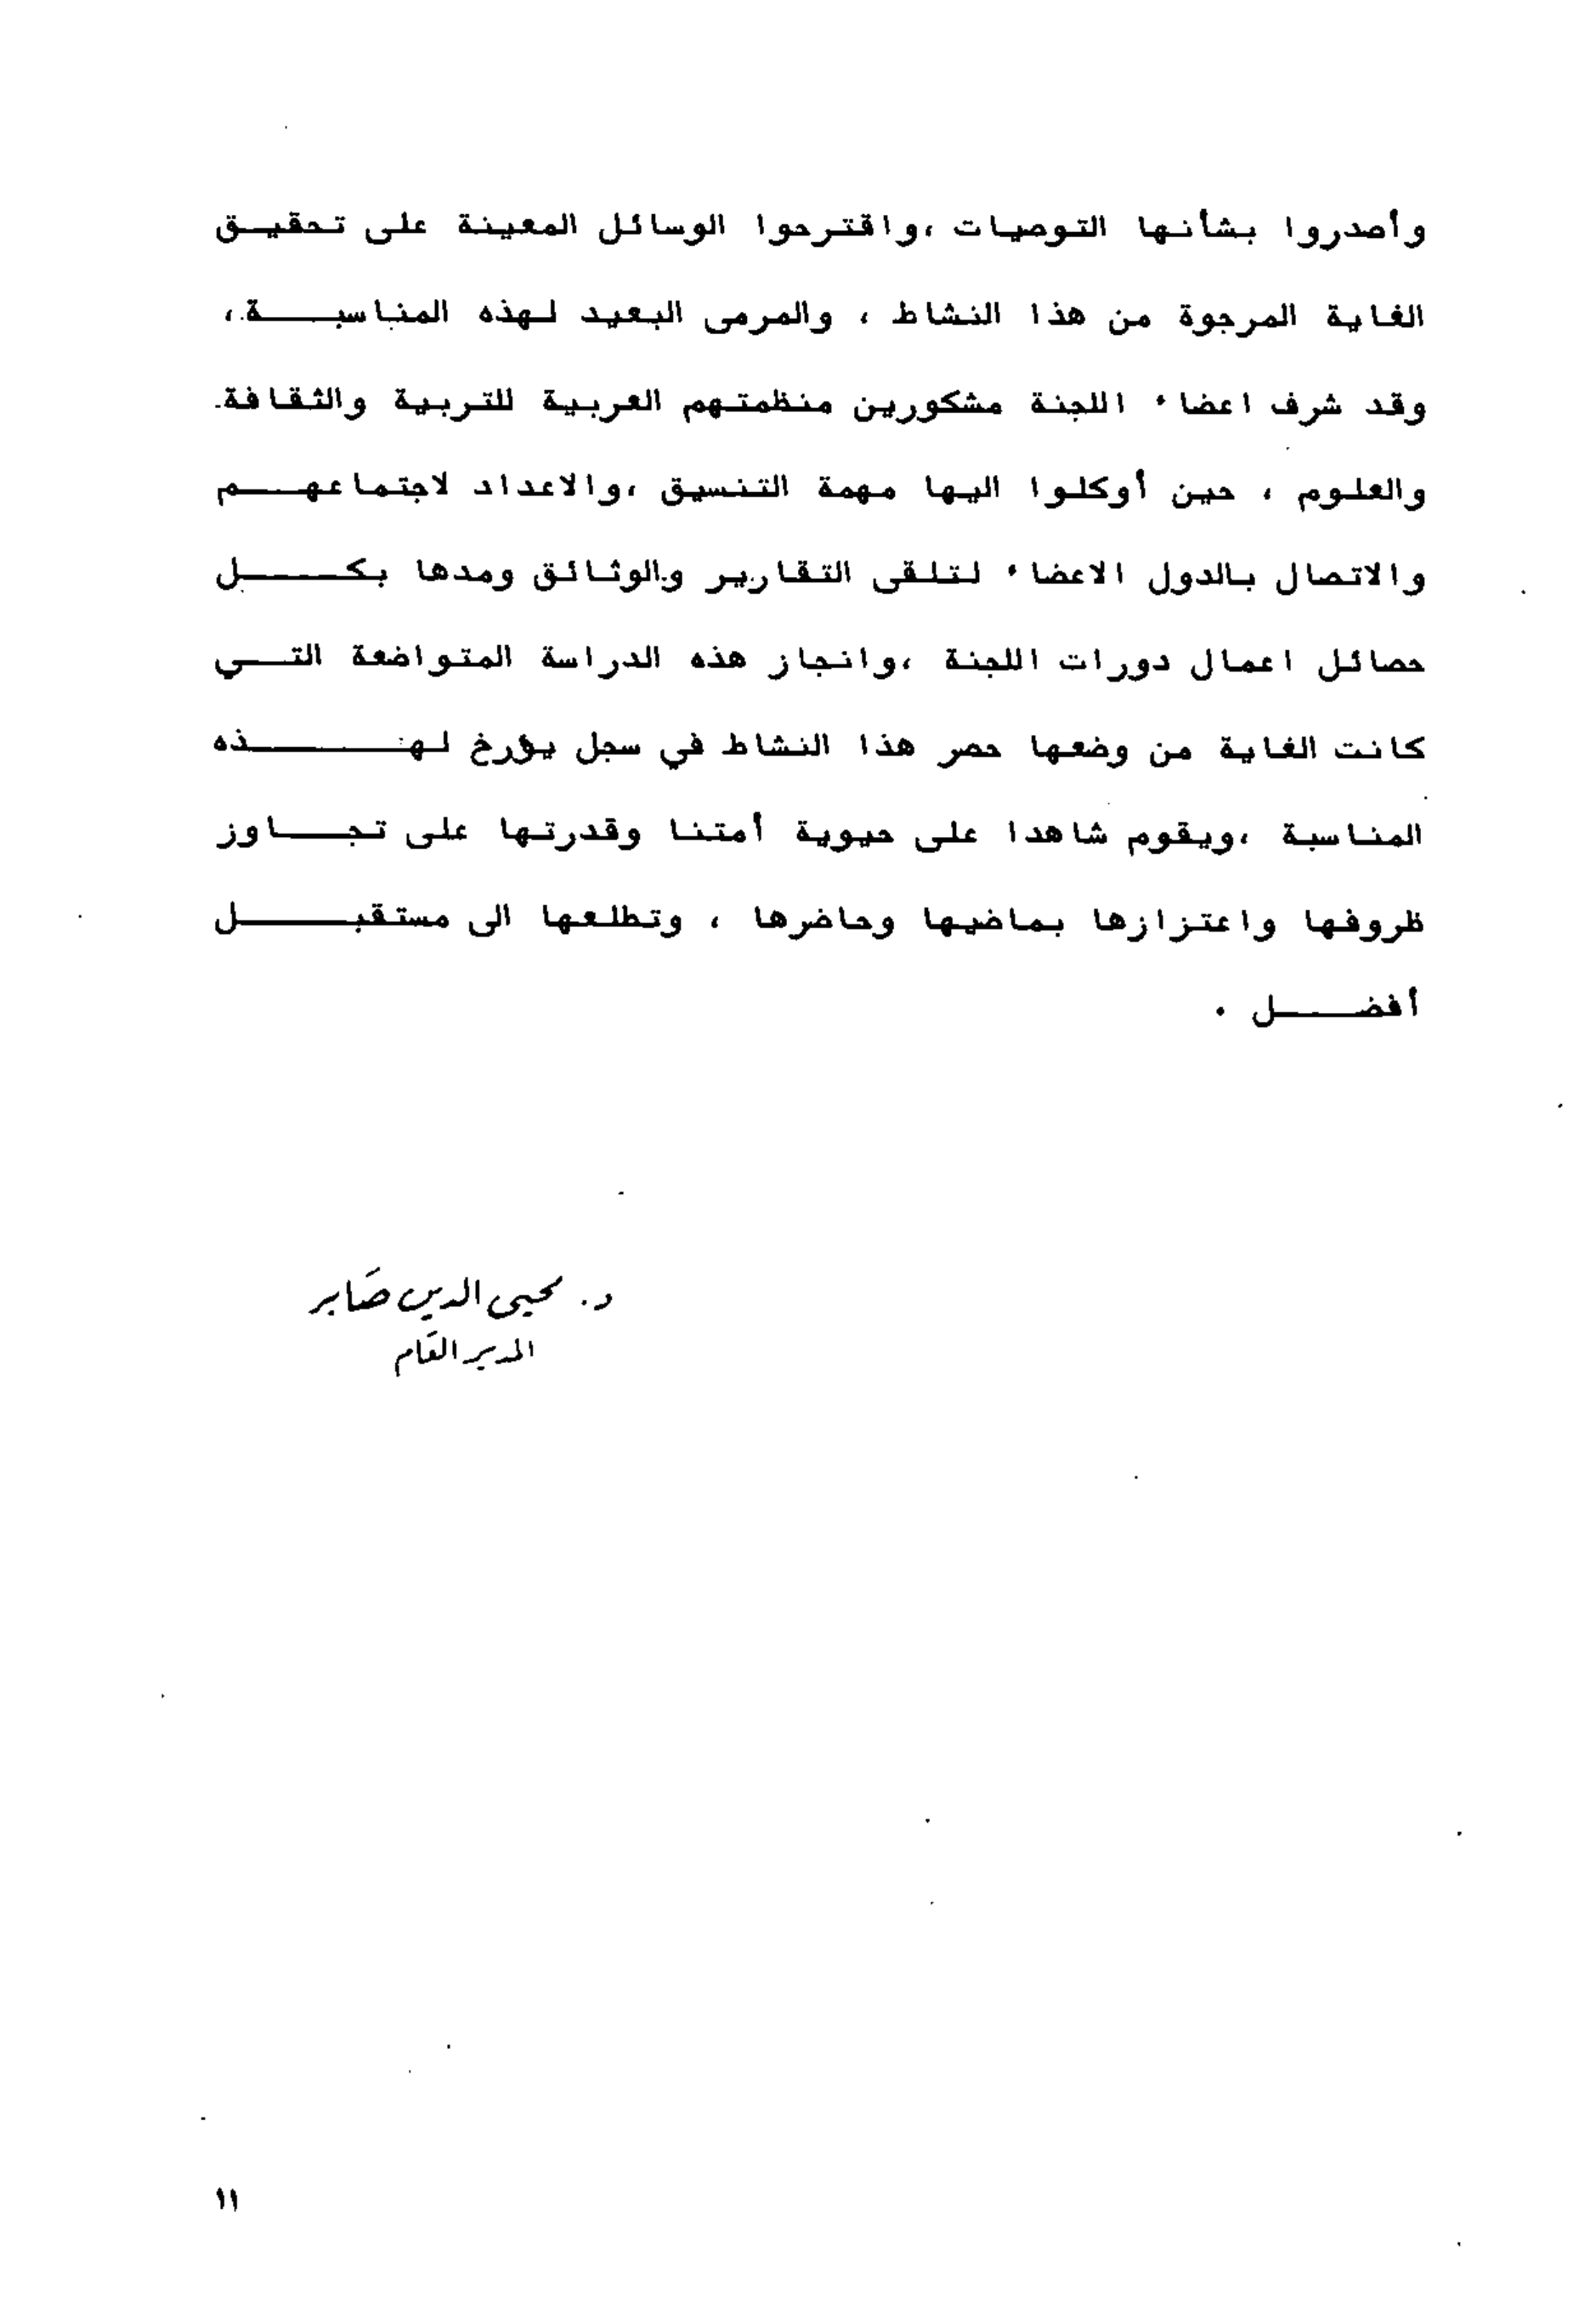 وأصدروا بشأنها التوصيات ،واقترحوا الوسائل المعينة على تحقيــق
الغاية المرجوة من هذا النشاط ، والمرمى البعيد لهذه المناسبـــة ،
وقد شرف اعضاء اللجنة مشكورين منظمتهم العربية للتربية والثقافة
والعلوم ، حين أوكلوا اليها مهمة التنسيق ،والاعداد لاجتماعهــم
والاتصال بالدول الاعضاء لتلقى التقارير والوثائق ومدها بكــــل
حصائل اعمال دورات اللجنة ،وانجاز هذه الدراسة المتواضعة التــي
كانت الغاية من وضعها حصر هذا النشاط في سجل يؤرخ لهـــــذه
المناسبة ،ويقوم شاهدا على حيوية أمتنا وقدرتها على تجـــاوز
ظروفها واعتزازها بماضيها وحاضرها ، وتطلعها الى مستقبـــــل
أفضــــل .
د. محيى الدين صَابر
المدير العَام
١١